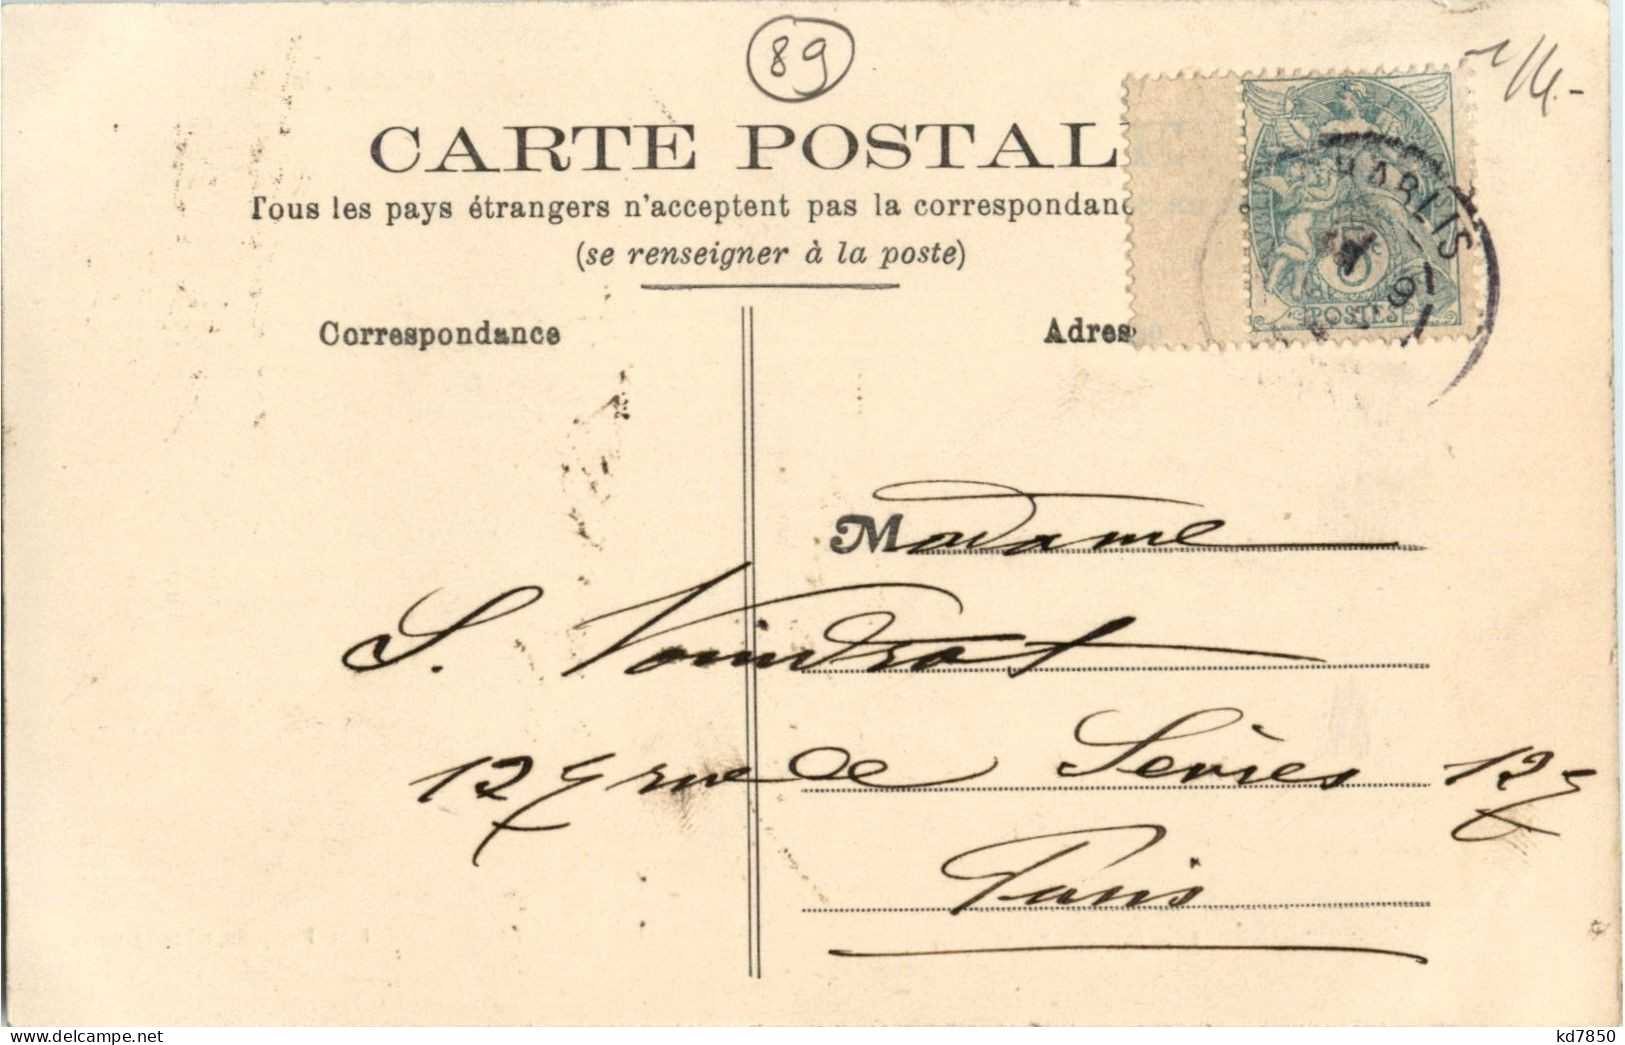 89
1/4.-
CARTE POSTAL
Tous les pays étrangers n'acceptent pas la correspondanc
(se renseigner à la poste)
Correspondance
Adres
CHABLIS
5
POSTES
Madame
S. Voindrot
127 rue de Sèvres 127
Paris
www.delcampe.net
kd7850